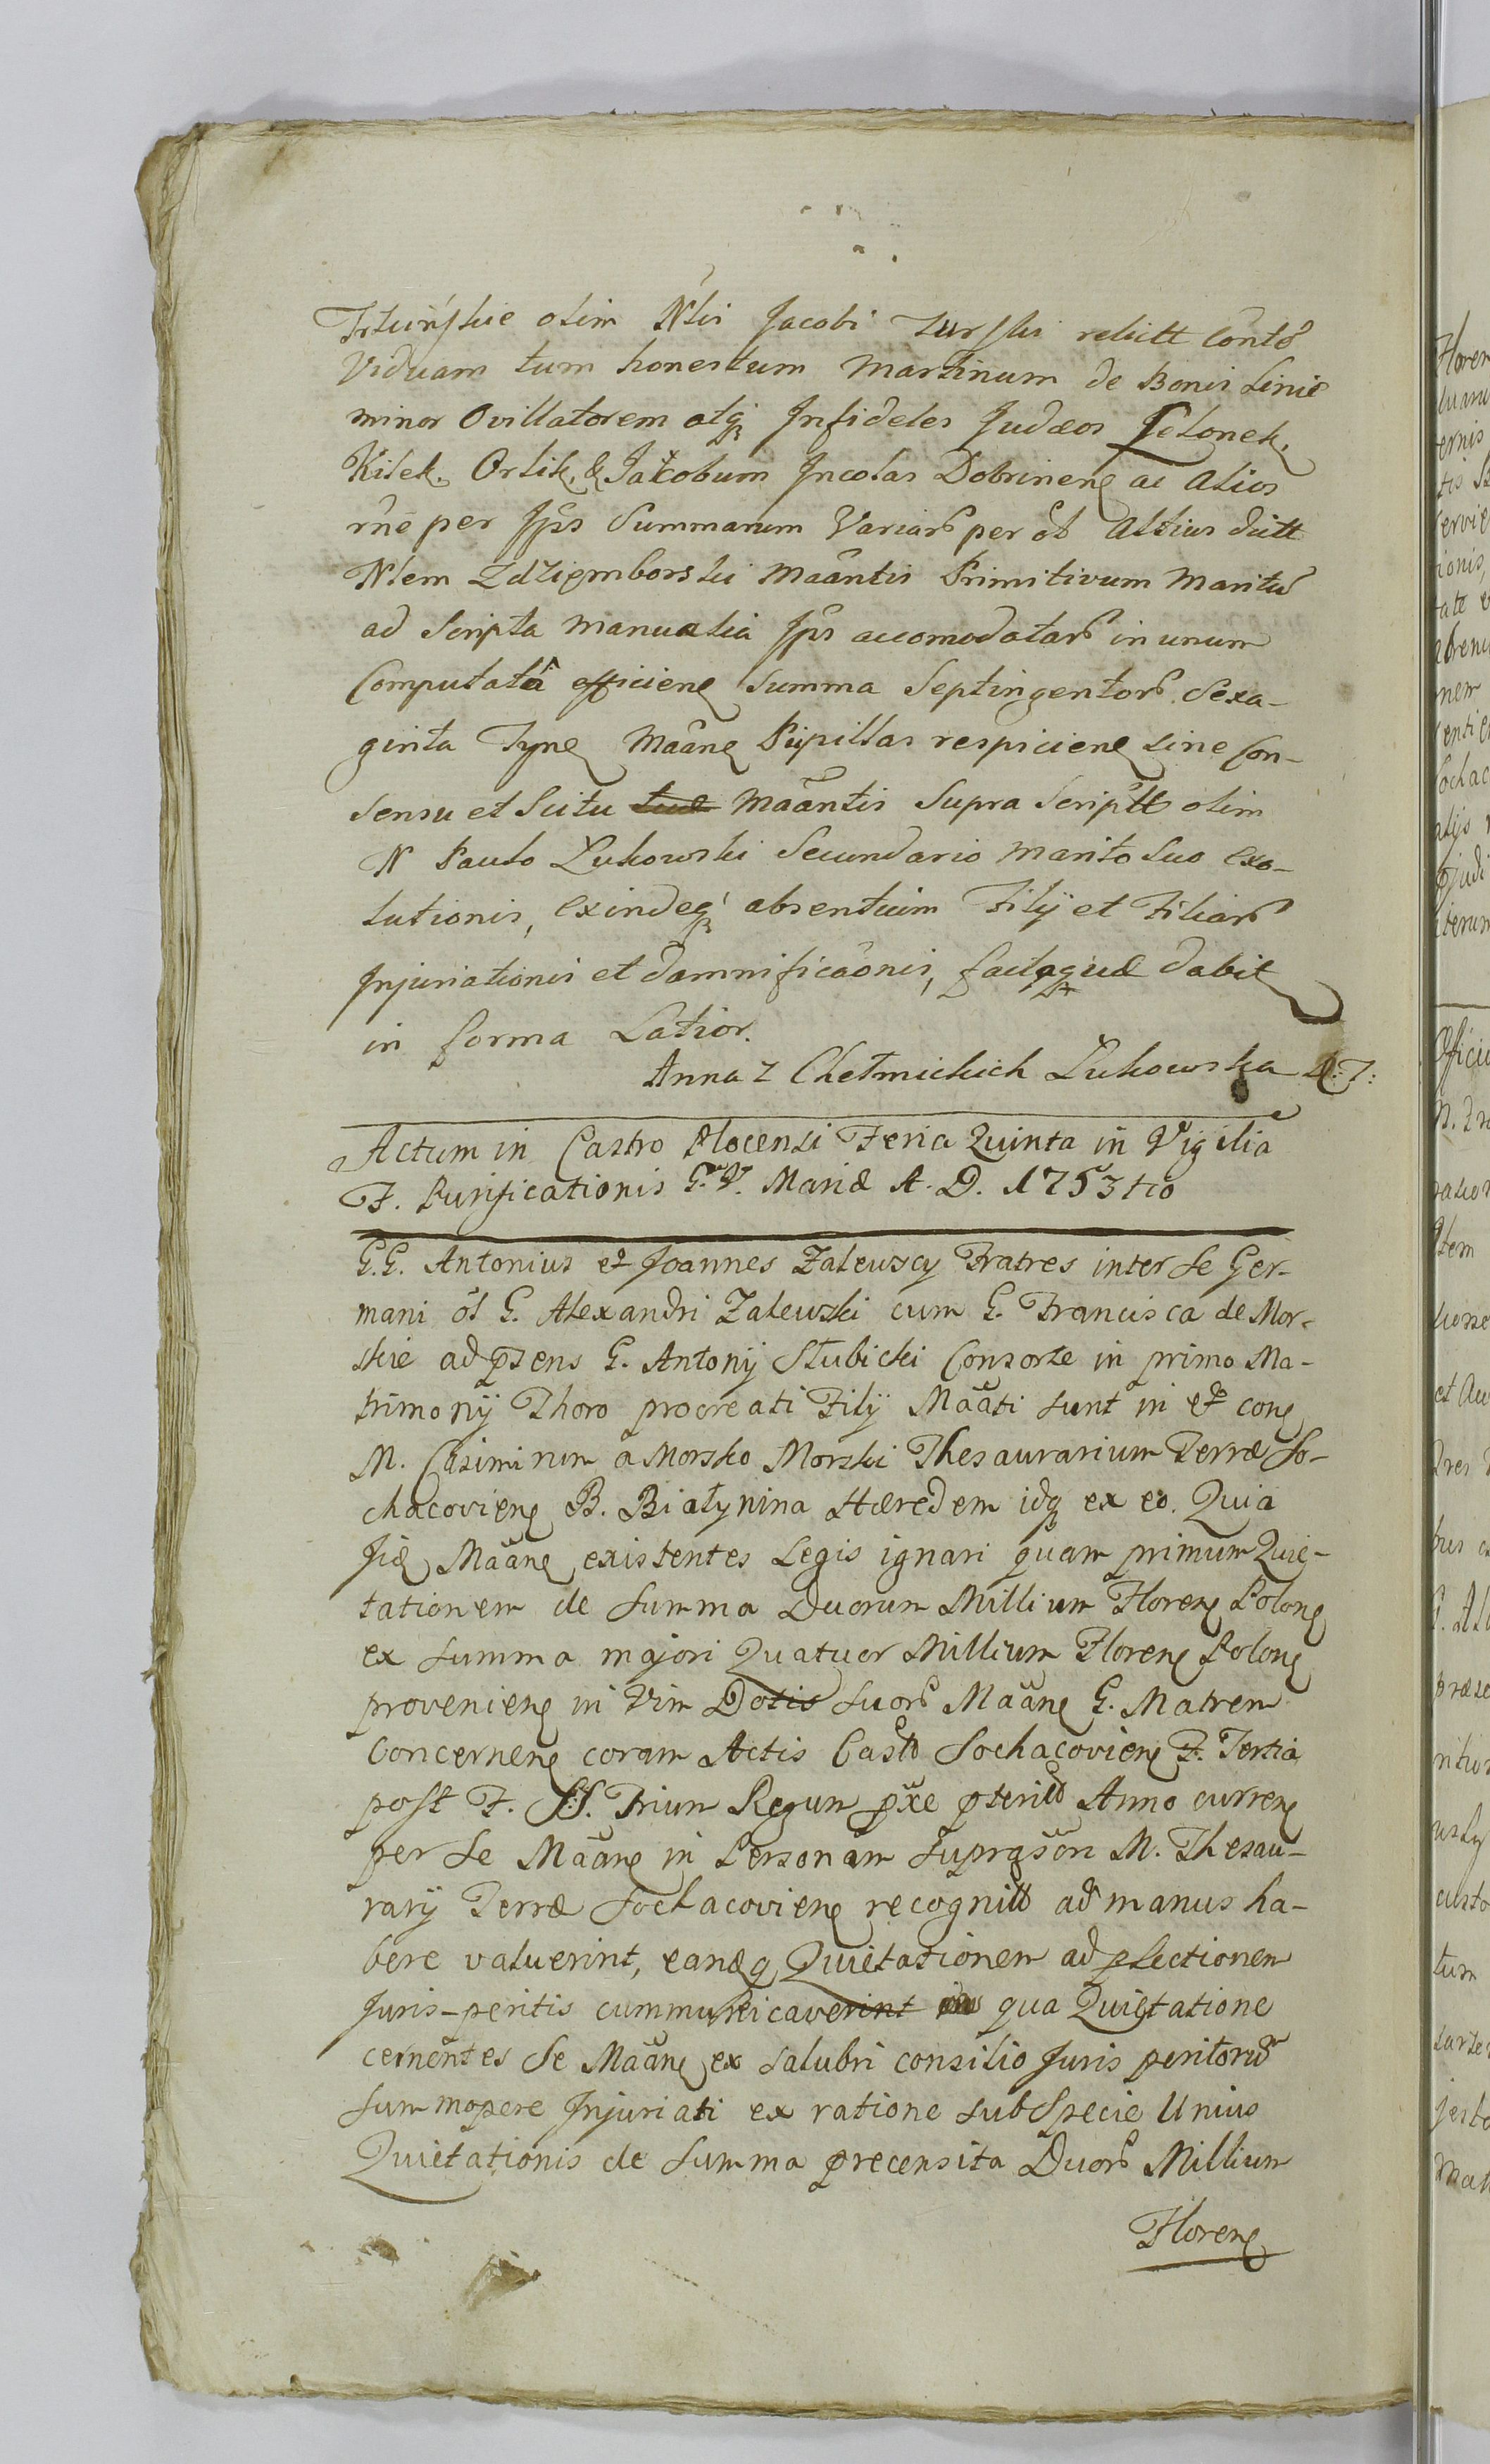 olim Nlis Jacobi Turski relictt Contō
Viduam tum honestum Martinum de Bonis Linie
minor Ovillatorem atq Infideles Judæos Jelonek.
Kilek. Orlik, & Jackobum Incolas Dobrinen ac alios
rñe per Ips Summarum Variar per ol Altius dictt
Nlem Zdzięmborski Maantis Primitivum Maritu
ad Scripta manualia Ips accomodatar in unum
Computatâ efficien Summa Septingentor. Sexa-
ginta Tynf Maan Pupillas respicien sine Con-
sensu et Scitu Maantis Supra Scriptt olim
N Paulo Łukowski Secundario Marito Suo exo-
lutionis, exindeq absentium Filÿ et Filiar
Injuriationis et damnificaonis, dabit
in forma Latior.
Anna z Chełmickich Łukowska
Actum in Castro Plocensi Feria Quinta in Vigilia
F. Purificationis G. V. Mariæ A. D. 1753tio
G.G. Antonius et Joannes Zalewscy Fratres inter se Ger-
mani ol G. Alexandri Zalewski cum G. Francisca de Mor-
skie ad psens G. Antonÿ Słubicki Consorte in primo Ma-
trimonÿ Thoro procreati Filÿ Maati sunt in et con
M. Casimirum a Morsko Morski Thesaurarium Terræ So-
chacovien B. Białynina Hæredem idq ex eo. Quia
Maan existentes Legis ignari quam primum Quie-
tationem de Summa Duorum Millium Floren Polon
ex Summa majori Quatuor Millium Floren Polon
provenien in Vim Dotis Suor Maan G. Matrem
Concernen coram Actis Castt Sochacovien F. Tertia
post F. SS. Trium Regum pxe pteritt Anno curren
per se Maan in Personam suprasön M. Thesau-
rarÿ Terræ Sochacovien recognitt ad manus ha-
bere valuerint, eandq Quietationem ad plectionem
Juris-peritis cummunicaverint qua Quietatione
cernentes se Maan ex salubri consilio Juris peritoru
summopere Injuriati ex ratione sub Specie Unius
Quietationis de Summa precensita Duor Millium
Floren